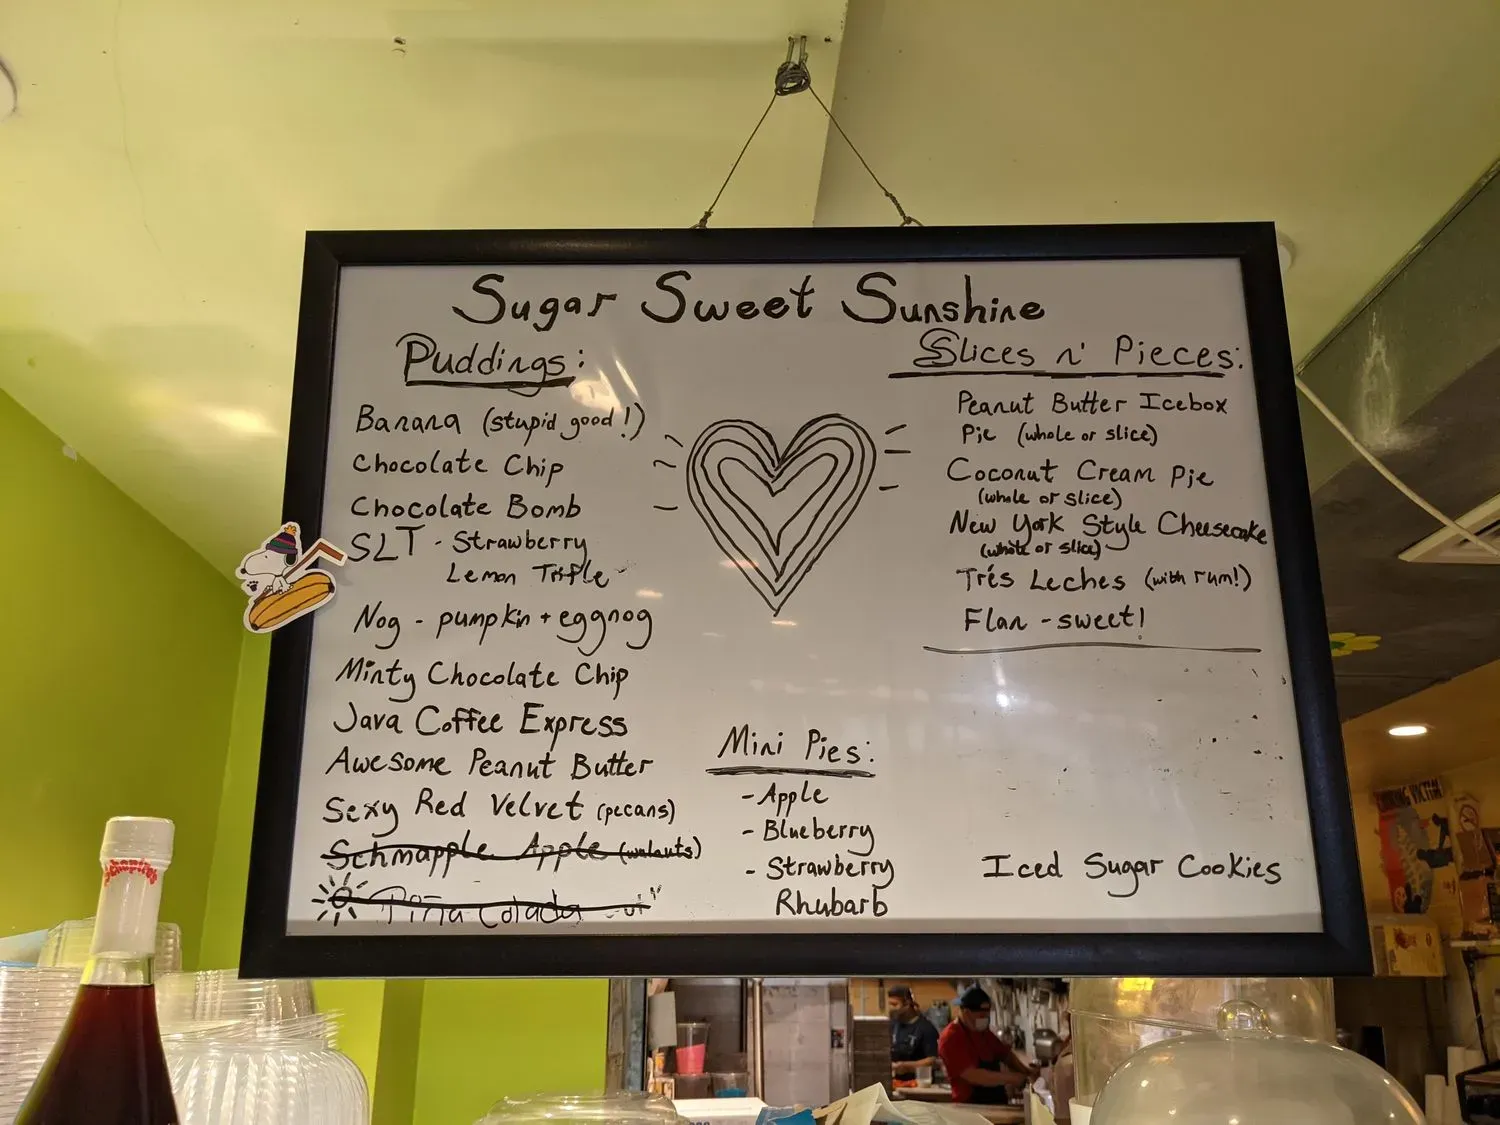 Sugar Sweet Sunshine
Puddings:
Banana (stupid good!)
Chocolate Chip
Chocolate Bomb
SLT - Strawberry
Lemon Trifle
Nog - pumpkin + eggnog
Minty Chocolate Chip
Java Coffee Express
Awesome Peanut Butter
Sexy Red Velvet (pecans)
Schmapple Apple (walnuts)
Piña Colada
Mini Pies:
- Apple
- Blueberry
- Strawberry
Rhubarb
Slices n' Pieces:
Peanut Butter Icebox
Pie (whole or slice)
Coconut Cream Pie
(whole or slice)
New York Style Cheesecake
(whole or slice)
Trés Leches (with rum!)
Flan - sweet!
Iced Sugar Cookies
Schapiro's